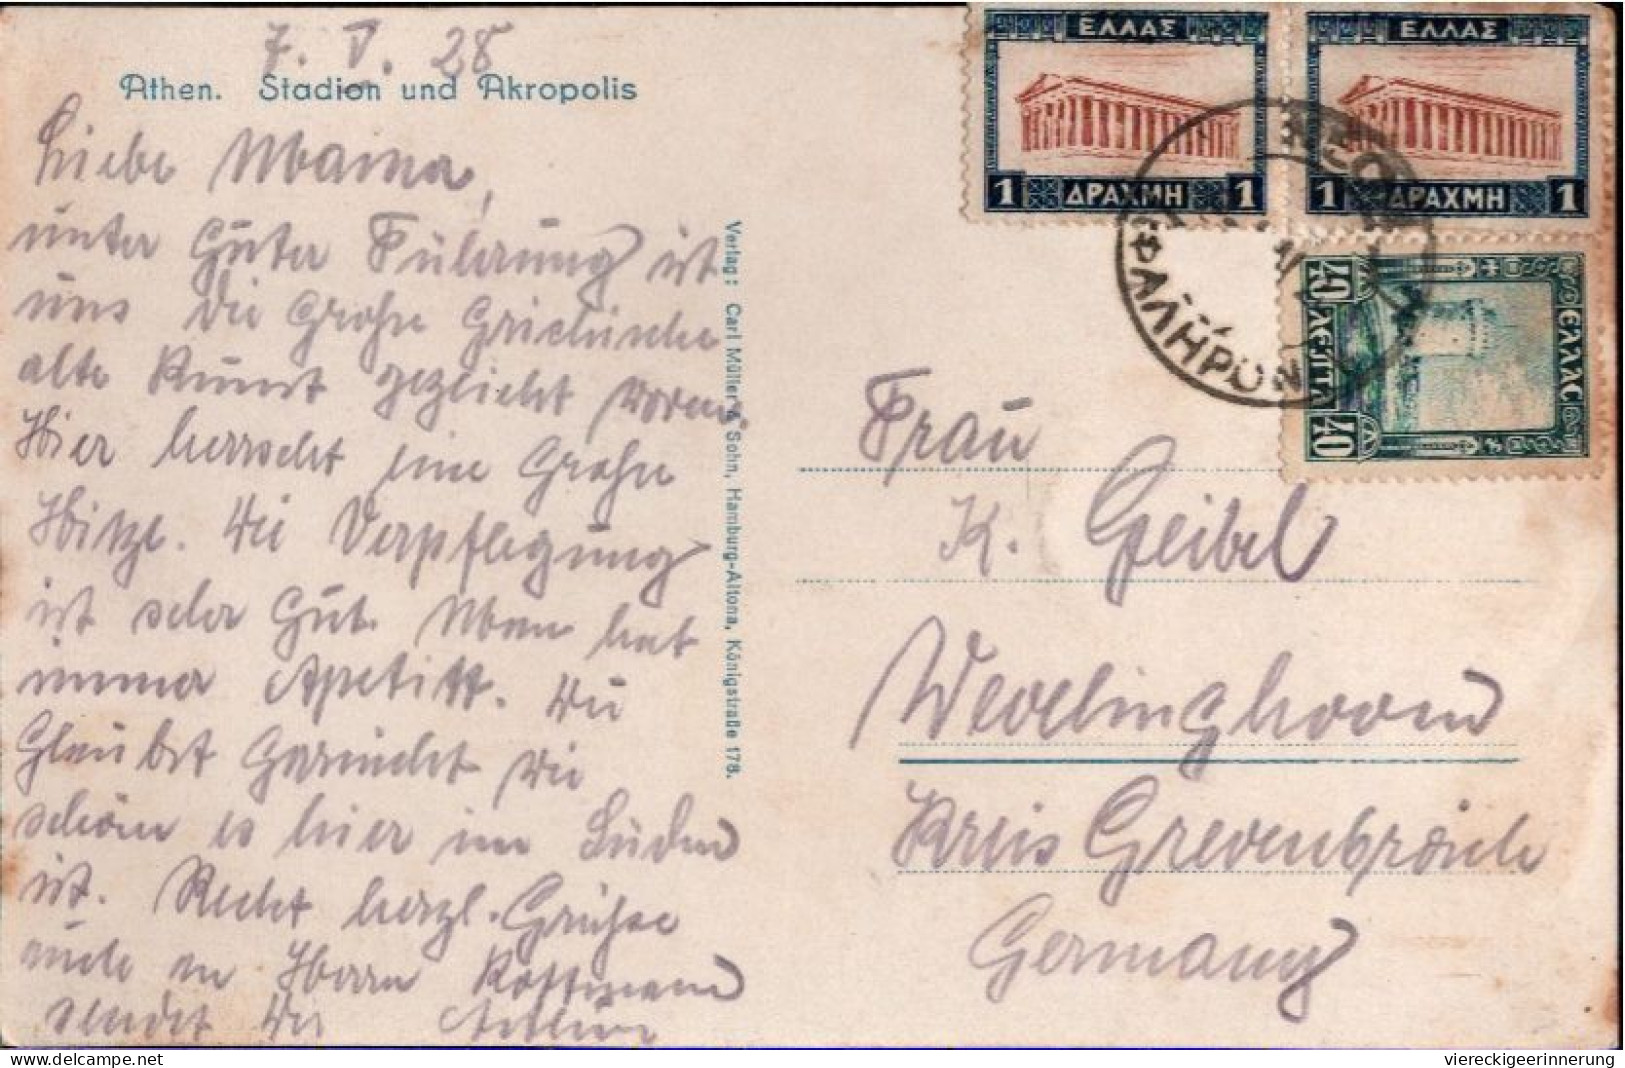 7. V. 28
Athen. Stadion und Akropolis
Liebe Mama,
unter Guter Führung ist
uns die Große Grichische
alte Kunst gezeicht worden.
Hier herrscht eine Große
Hitze. Die Verpflegung
ist sehr Gut. Man hat
immer Apetitt. Du
Glaubst Garnicht wie
schön es hier im Süden
ist. Recht herzl. Grüße
auch an Herrn Rottmann
sendet Dir
Verlag: Carl Müller & Sohn, Hamburg-Altona, Königstraße 178.
ΕΛΛΑΣ
1 ΔΡΑΧΜΗ 1
ΕΛΛΑΣ
1 ΔΡΑΧΜΗ 1
ΕΛΛΑΣ
40 ΛΕΠΤΑ 40
ΦΑΛΗΡΟΝ
Frau
K. Geibel
Wevelinghoven
Kreis Grevenbroich
Germany
viereckigeerinnerung